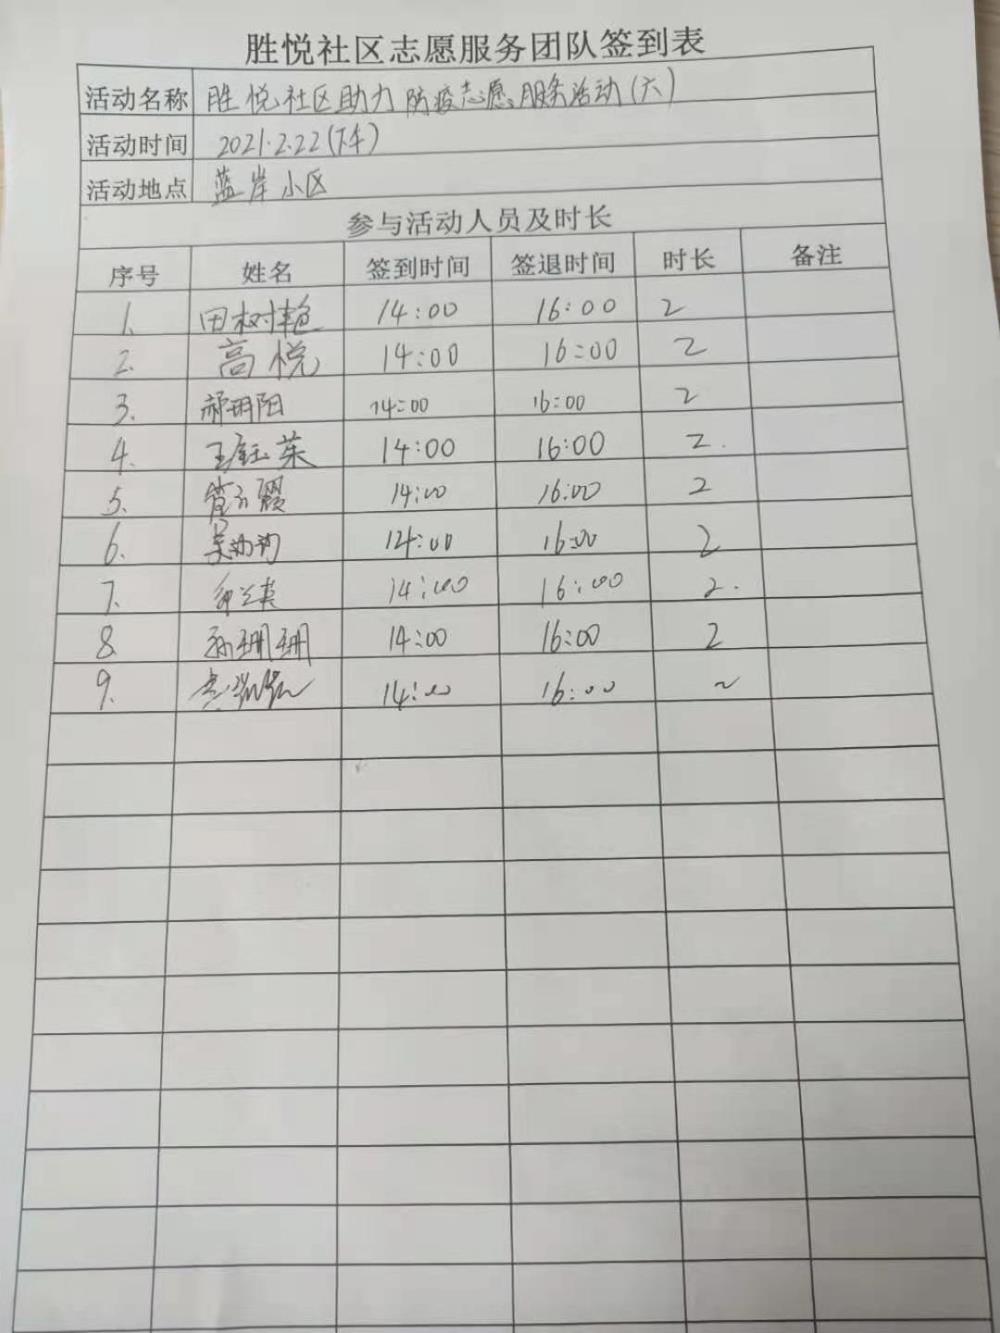 胜悦社区志愿服务团队签到表
活动名称 胜悦社区助力防疫志愿服务活动(六)
活动时间 2021.2.22(下午)
活动地点 蓝岸小区
参与活动人员及时长
序号 姓名 签到时间 签退时间 时长 备注
1. 田树艳 14:00 16:00 2
2. 高悦 14:00 16:00 2
3. 祁玥阳 14:00 16:00 2
4. 王钰茱 14:00 16:00 2.
5. 霞 14:00 16:00 2
6. 14:00 16:00 2
7. 14:00 16:00 2.
8. 孙珊珊 14:00 16:00 2
9. 14:00 16:00 2